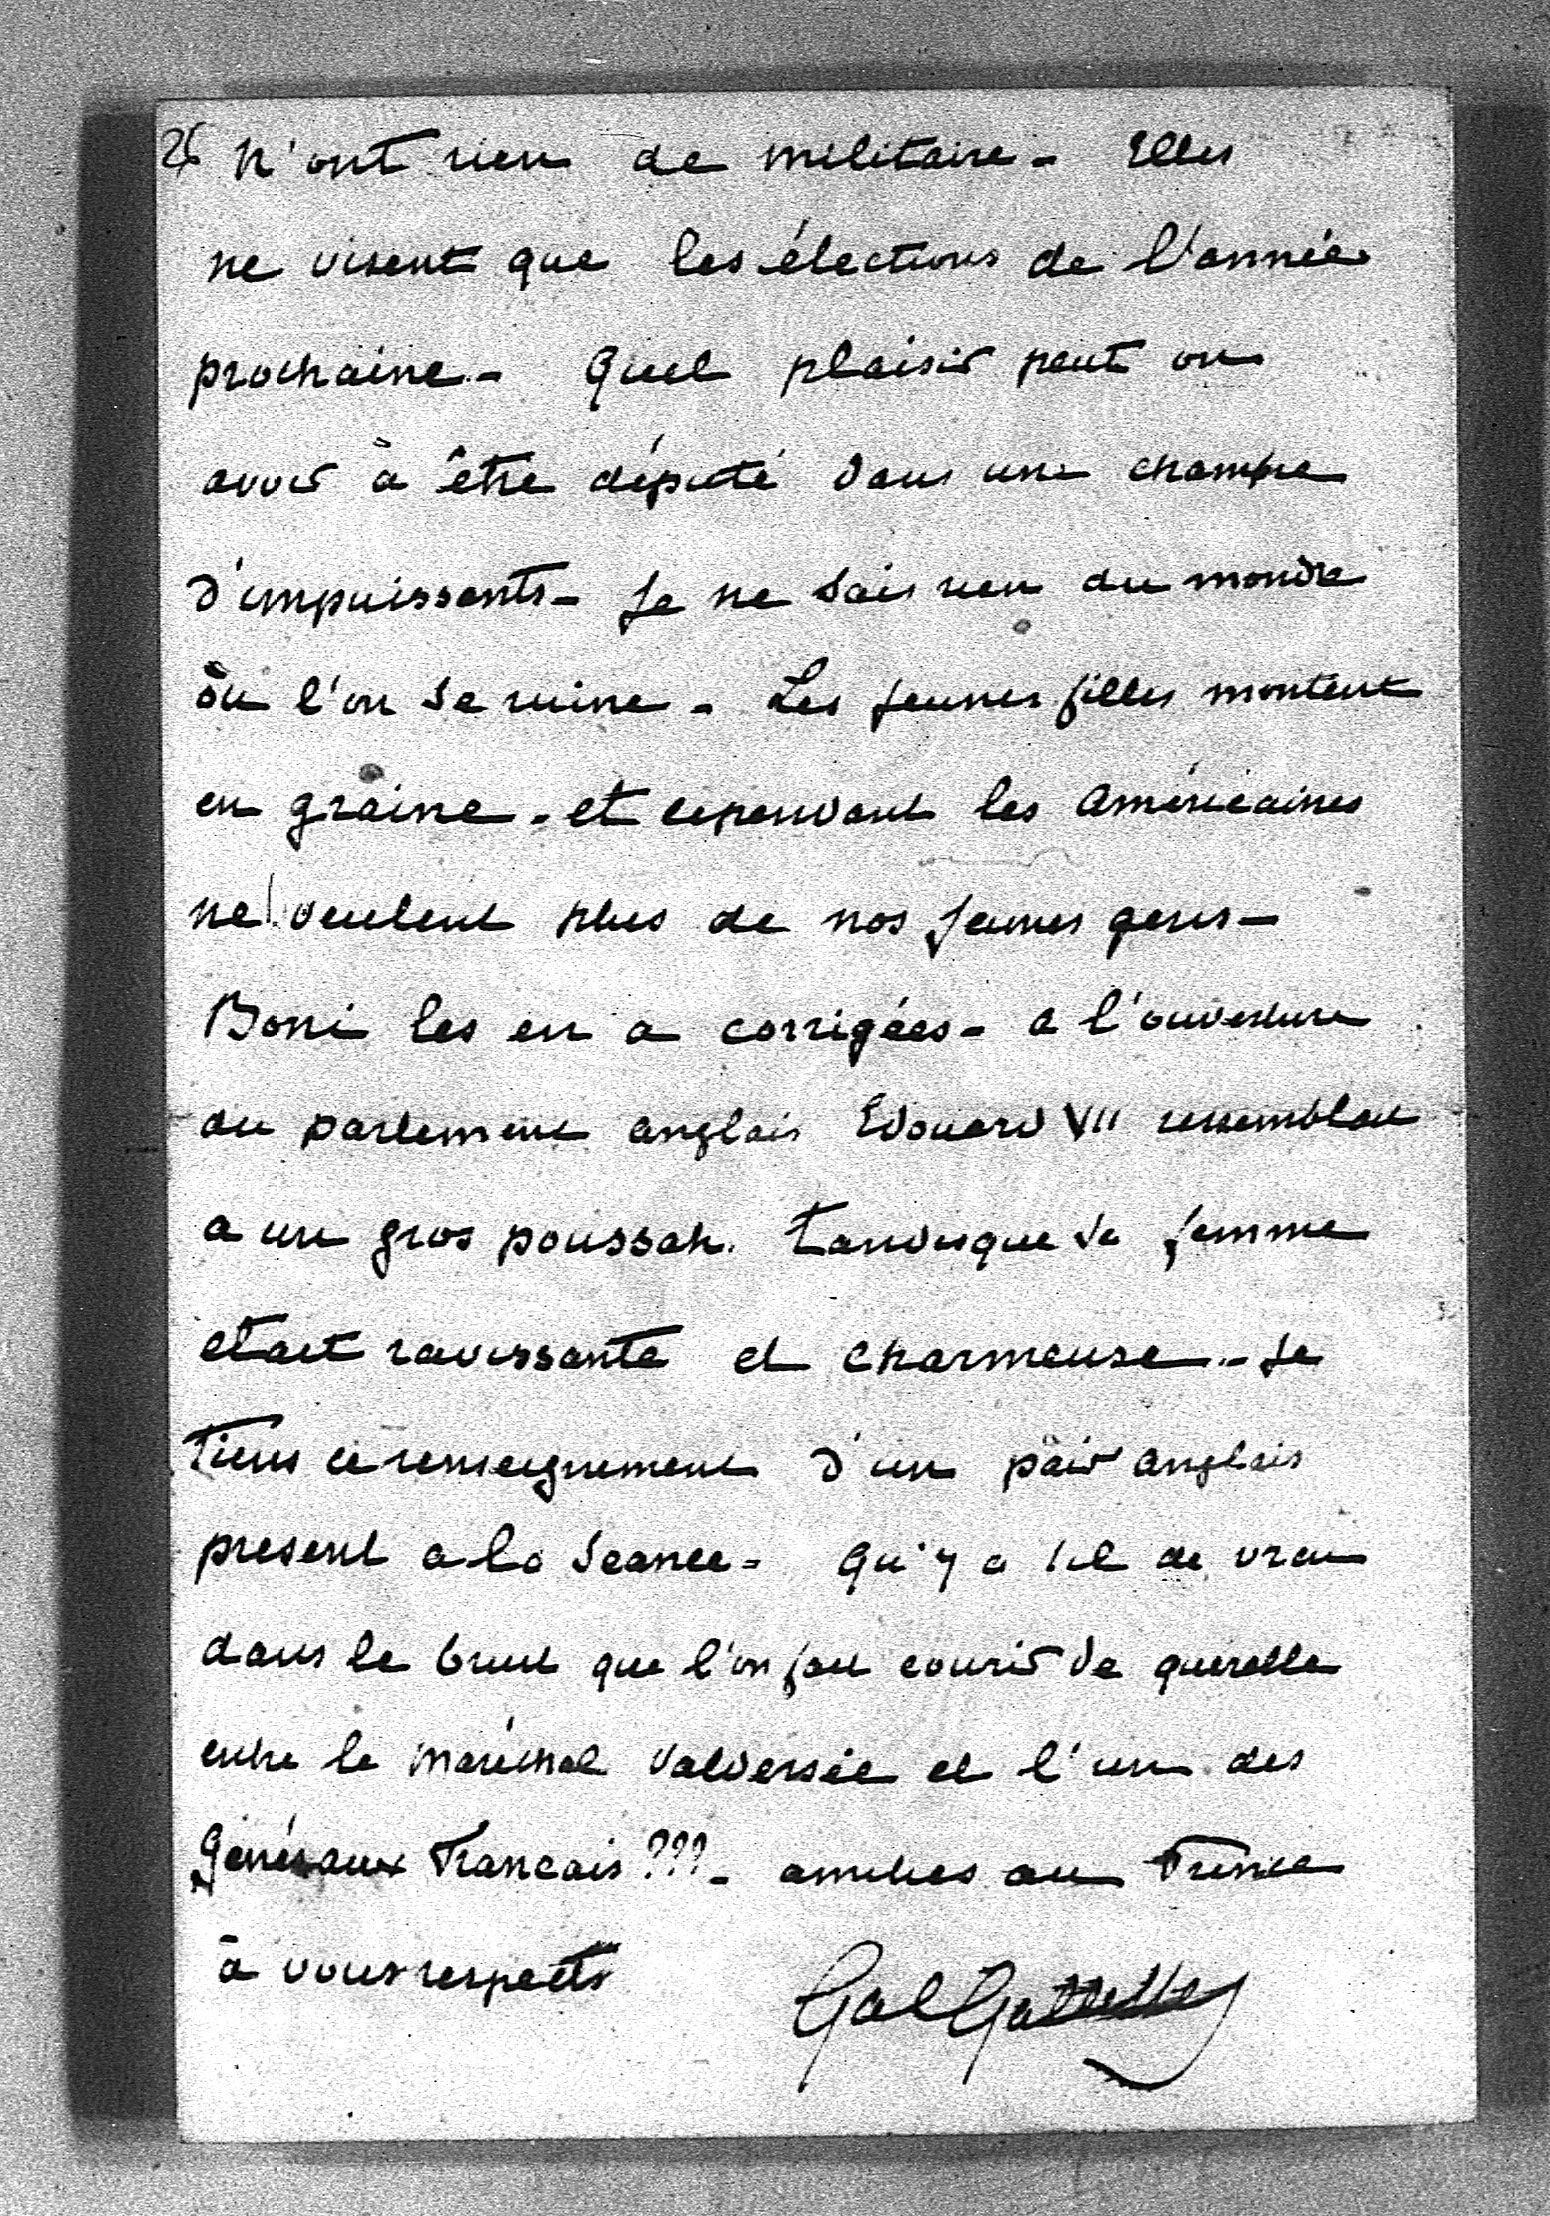 26 n'ont rien de militaire - Elles
ne visent que les élections de l'année
prochaine - Quel plaisir peut on
avoir à être député dans une chambre
d'impuissants - Je ne sais rien du monde
où l'on se ruine - Les jeunes filles montent
en graine - et cependant les américaines
ne veulent plus de nos jeunes gens -
Boni les en a corrigées - a l'ouverture
du parlement anglais Edouard VII ressemblait
a un gros poussah. Tandisque sa femme
etait ravissante et charmeuse - Je
tiens ce renseignement d'un pair anglais
present a la Seance - Qu'y a til de vrai
dans le bruit que l'on fait courir de querelle
entre le maréchal Valdersée et l'un des
Généraux Francais ??? - amities au Prince
à vous respects
Gal Galliffet